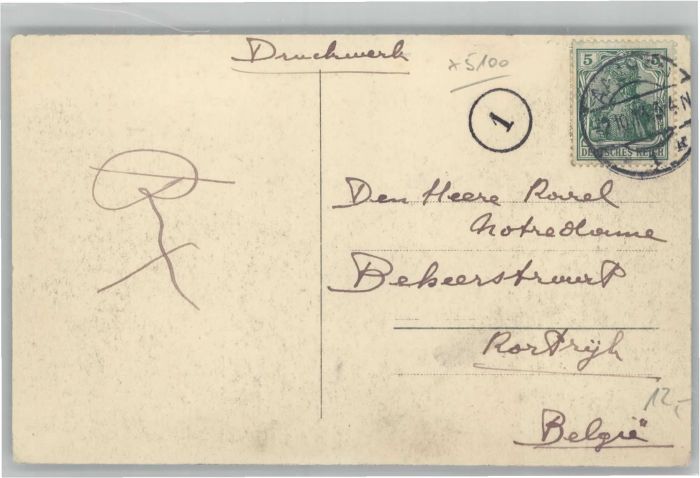 Druckwerk
x5100
1
5 5
DEUTSCHES REICH
Den Heere Karel
Notredame
Bekeerstraat
Kortrijk
12,-
België